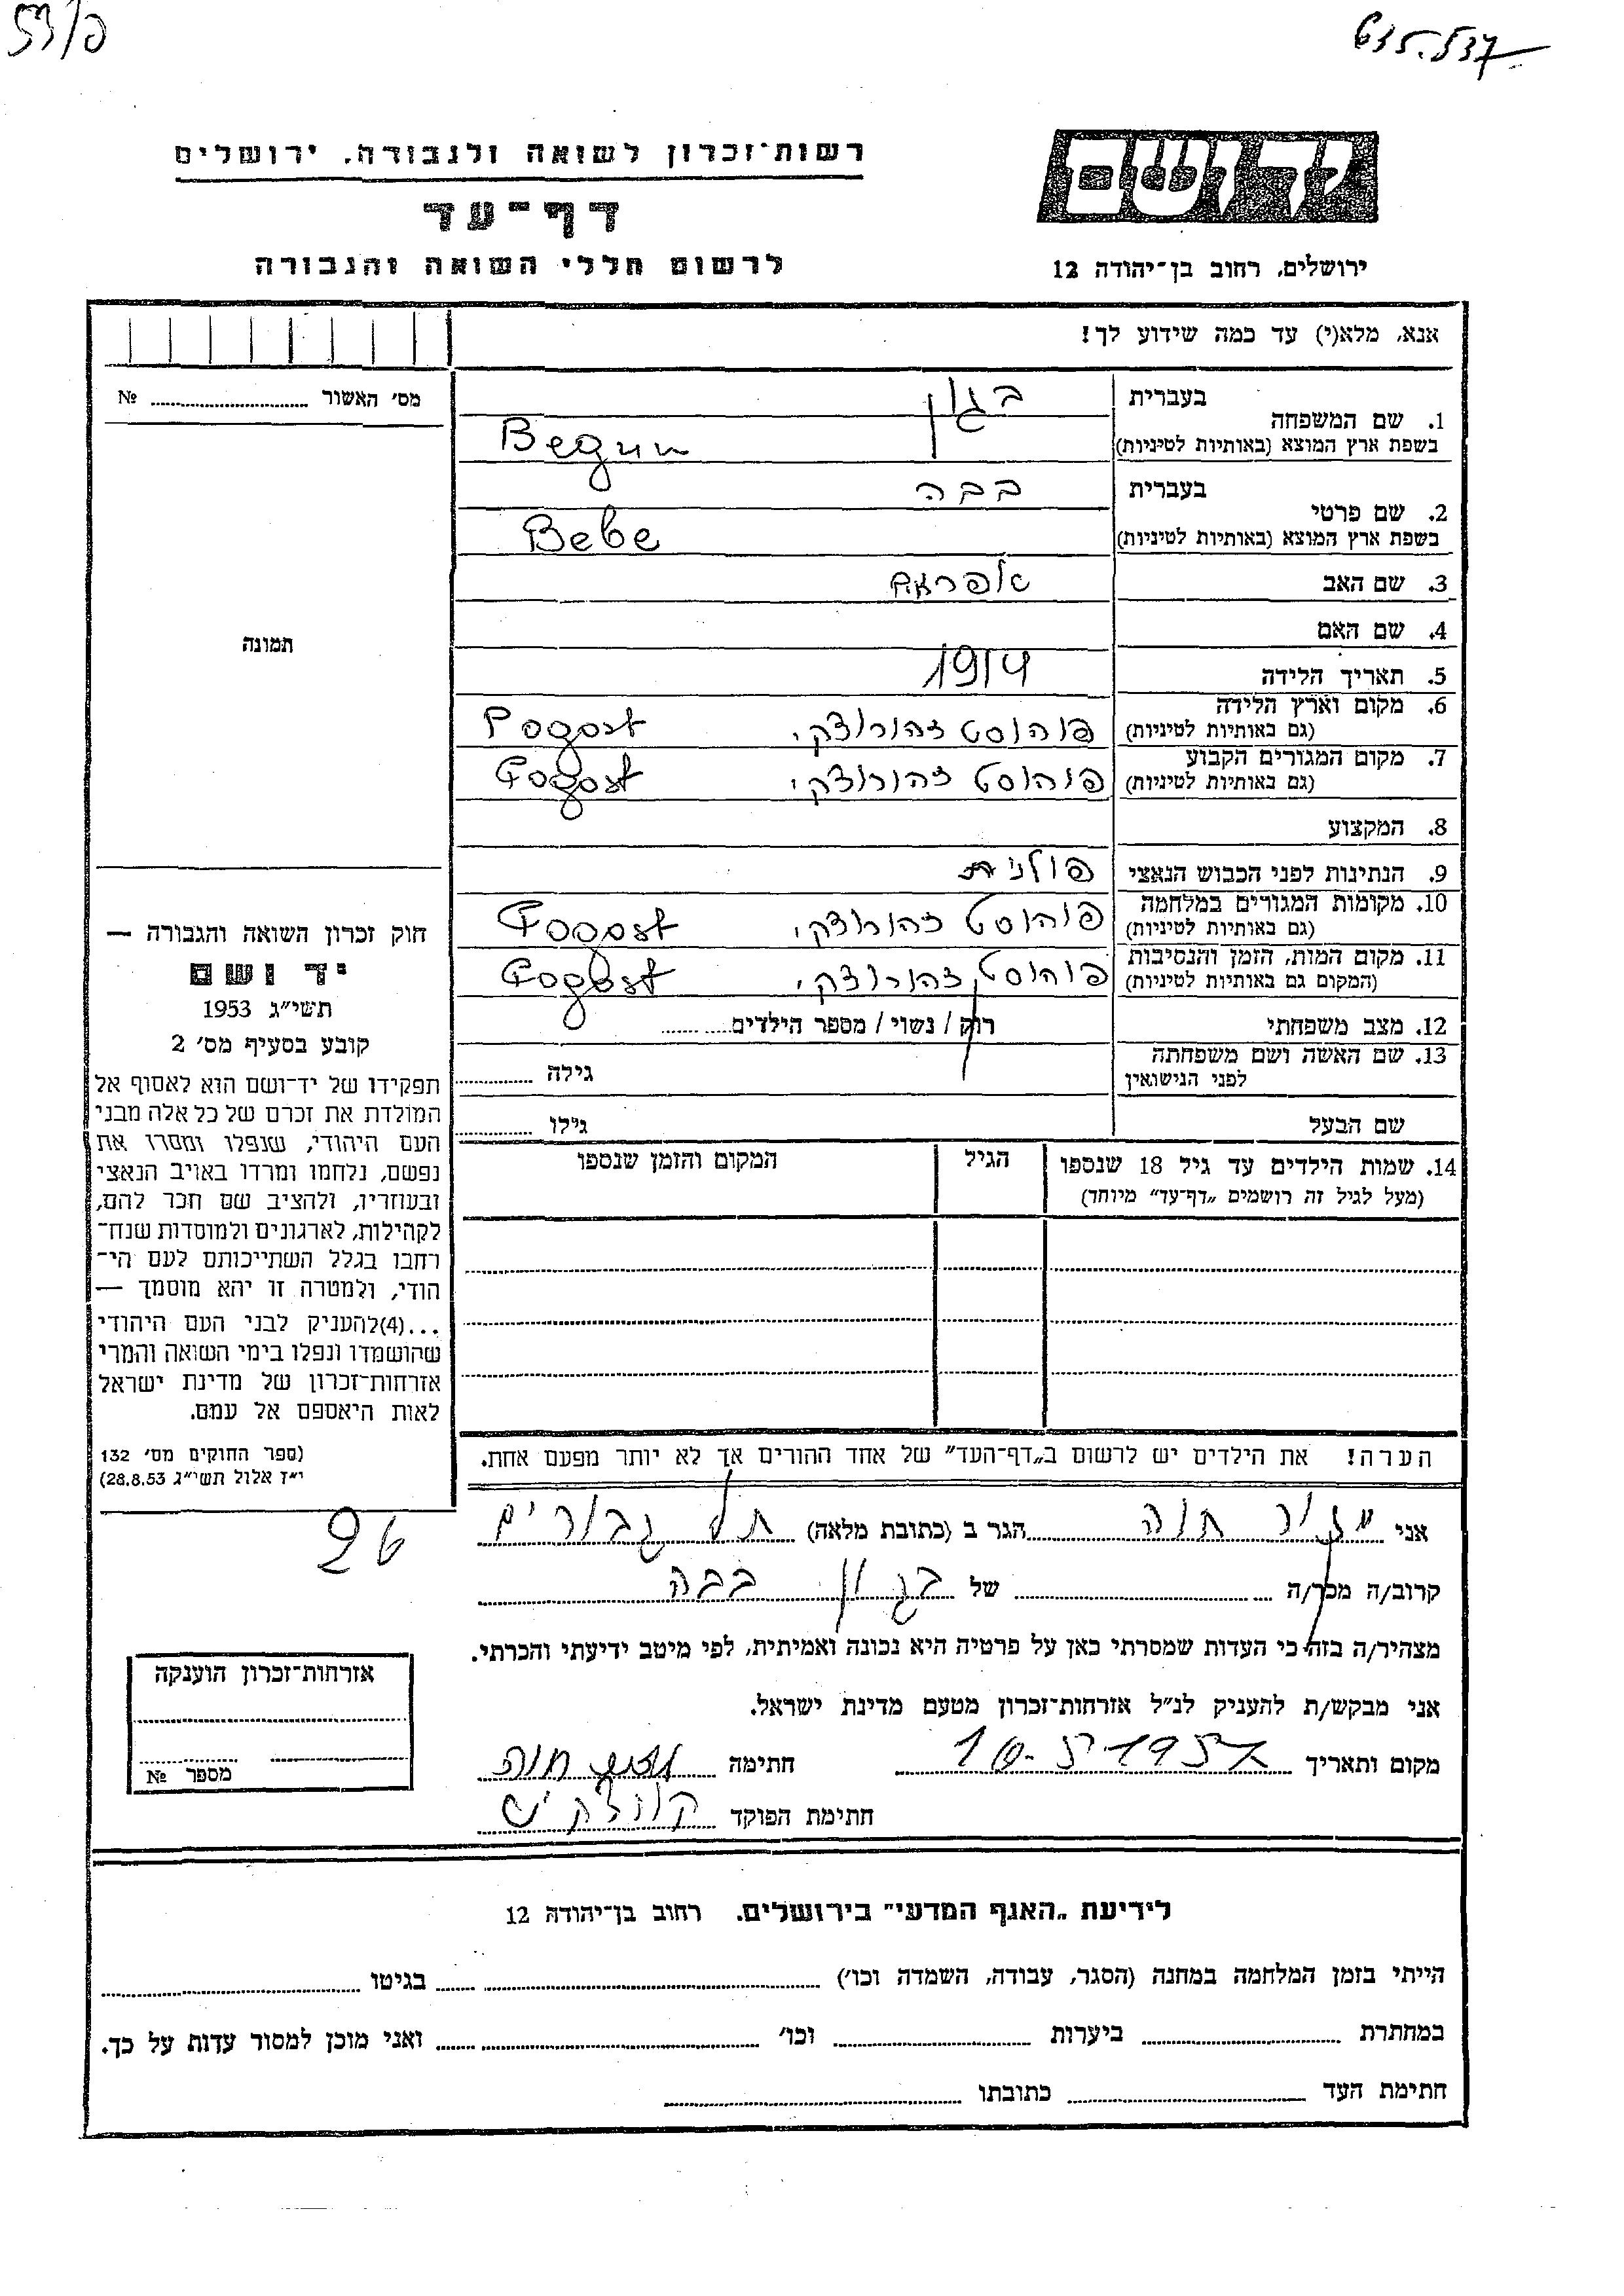 635.537
רשות־זכרון לשואה ולגבורה, ירושלים
דף־עד
לרשום חללי השואה והגבורה
יד ושם
ירושלים, רחוב בן־יהודה 12
אנא, מלא(י) עד כמה שידוע לך!
מס׳ האשור ........ №
1. שם המשפחה
בעברית בגון
בשפת ארץ המוצא (באותיות לטיניות) Begun
2. שם פרטי
בעברית בבה
בשפת ארץ המוצא (באותיות לטיניות) Bebe
3. שם האב
4. שם האם
5. תאריך הלידה 1914
6. מקום וארץ הלידה
(גם באותיות לטיניות) פוהוסט זהורודצקי, Pogost
7. מקום המגורים הקבוע
(גם באותיות לטיניות) פוהוסט זהורודצקי, Pogost
8. המקצוע
9. הנתינות לפני הכבוש הנאצי פולנית
10. מקומות המגורים במלחמה
(גם באותיות לטיניות) פוהוסט זהורודצקי, Pogost
11. מקום המות, הזמן והנסיבות
(המקום גם באותיות לטיניות) פוהוסט זהורודצקי, Pogost
12. מצב משפחתי רוק / נשוי / מספר הילדים........
13. שם האשה ושם משפחתה
לפני הנישואין גילה ........
שם הבעל גילו ........
14. שמות הילדים עד גיל 18 שנספו
(מעל לגיל זה רושמים „דף־עד״ מיוחד)
הגיל
המקום והזמן שנספו
הערה! את הילדים יש לרשום ב„דף־העד״ של אחד ההורים אך לא יותר מפעם אחת.
תמונה
חוק זכרון השואה והגבורה —
יד ושם
תשי״ג 1953
קובע בסעיף מס׳ 2
תפקידו של יד־ושם הוא לאסוף אל
המולדת את זכרם של כל אלה מבני
העם היהודי, שנפלו ומסרו את
נפשם, נלחמו ומרדו באויב הנאצי
ובעוזריו, ולהציב שם וזכר להם,
לקהילות, לארגונים ולמוסדות שנח־
רחבו בגלל השתייכותם לעם הי־
הודי, ולמטרה זו יהא מוסמך —
...(4)להעניק לבני העם היהודי
שהושמדו ונפלו בימי השואה והמרי
אזרחות־זכרון של מדינת ישראל
לאות היאספם אל עמם.
(ספר החוקים מס׳ 132
י״ז אלול תשי״ג 28.8.53)
26
אני חוה הגר ב (כתובת מלאה) תל גבורים
קרוב/ה מכר/ה ........ של בגון בבה
מצהיר/ה בזה כי העדות שמסרתי כאן על פרטיה היא נכונה ואמיתית, לפי מיטב ידיעתי והכרתי.
אני מבקש/ת להעניק לנ״ל אזרחות־זכרון מטעם מדינת ישראל.
מקום ותאריך חתימה חוה
חתימת הפוקד
אזרחות־זכרון הוענקה
מספר №
לידיעת „האגף המדעי״ בירושלים. רחוב בן־יהודה 12
הייתי בזמן המלחמה במחנה (הסגר, עבודה, השמדה וכו׳) ........ בגיטו ........
במחתרת ........ ביערות ........ וכו׳ ........ ואני מוכן למסור עדות על כך.
חתימת העד ........ כתובתו ........